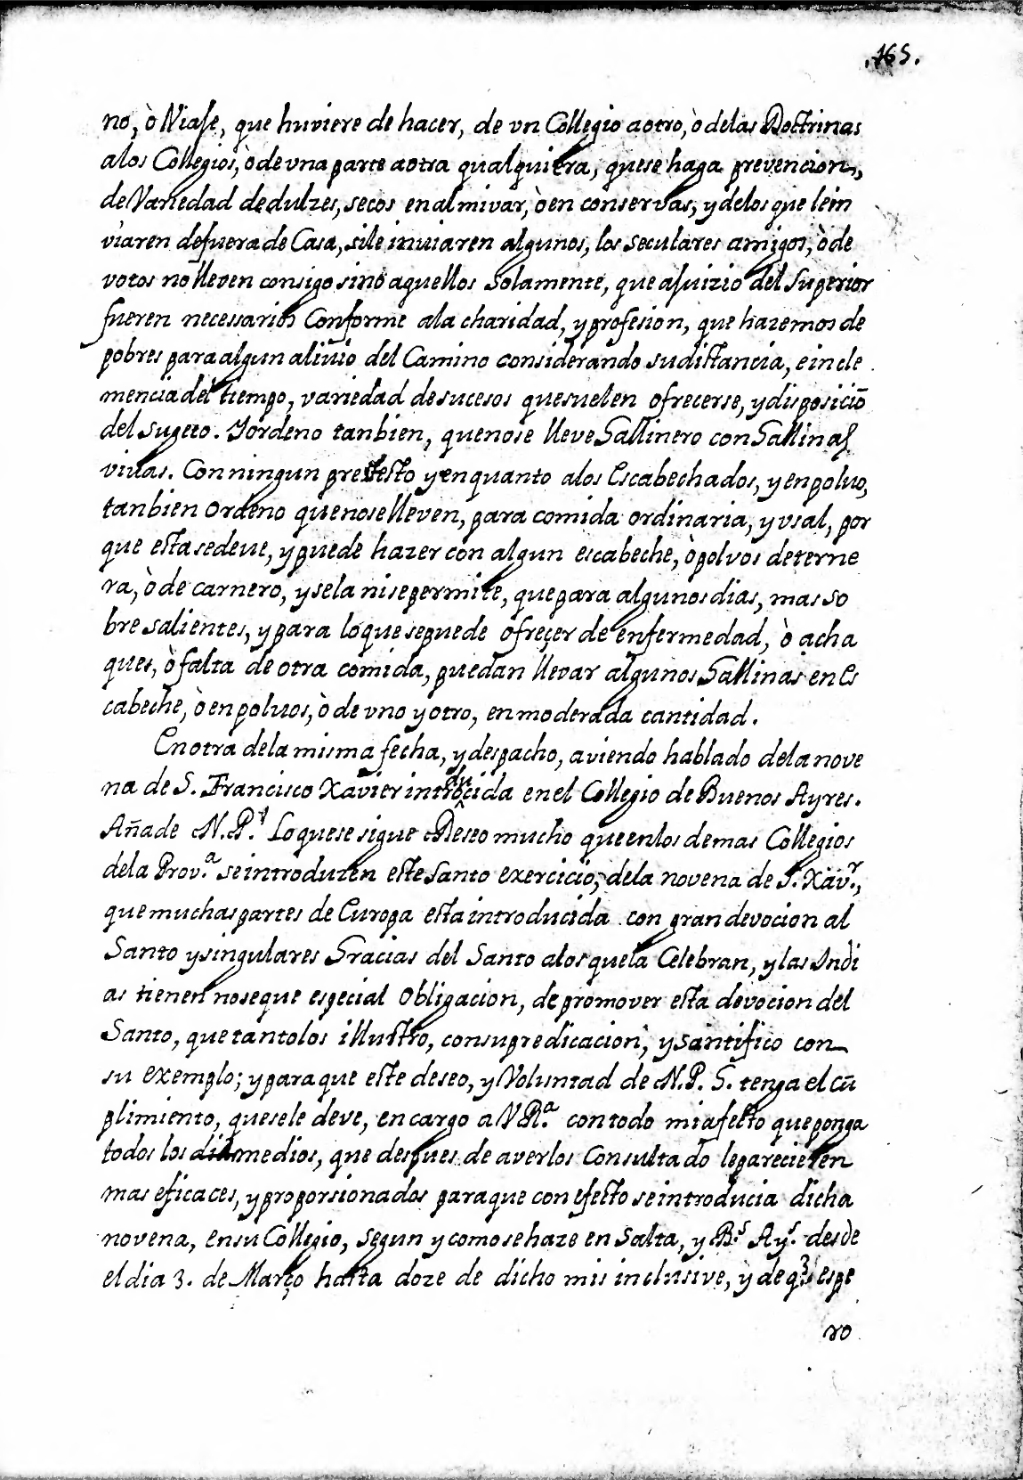 .165.
no, ò Viaſe, que huviere de hacer, de vn Collegio a otro, ò de las Doctrinas
a los Collegios, ò de vna parte a otra qualquiera, que se haga prevencion,
de Variedad de dulzes, secos en almivar, ò en conservas, y de los que le in
viaren de fuera de Casa, si le inuiaren algunos, los seculares amigos, ò de
votos no lleven consigo sino aquellos Solamente, que a juizio del Superior
fueren necessarios Conforme a la charidad, y profesion, que hazemos de
pobres para algun aliuio del Camino considerando su distancia, e incle
mencia del tiempo, variedad de sucesos que suelen ofrecerse, y disposiciō
del sugeto. Y ordeno tanbien, que no se lleve Gallinero con Gallinas
viuas. Con ningun pretesto y en quanto a los Escabechados, y en poluo,
tanbien Ordeno que no se lleven, para comida ordinaria, y vsal, por
que esta se deue, y puede hazer con algun escabeche, ò polvos de terne
ra, ò de carnero, y se la ni se permite, que para algunos dias, mas so
bre salientes, y para lo que se puede ofreçer de enfermedad, ò acha
ques, ò falta de otra comida, puedan llevar algunos Gallinas en Es
cabeche, ò en poluos, ò de vno y otro, en moderada cantidad.
En otra de la misma fecha, y despacho, aviendo hablado de la nove
na de S. Francisco Xavier introducida en el Collegio de Buenos Ayres.
Añade N. P.e Lo que se sigue Deseo mucho que en los demas Collegios
de la Prov.a se introduzen este Santo exercicio, de la novena de S. Xav.r,
que muchas partes de Europa esta introducida con gran devocion al
Santo y singulares Gracias del Santo a los que la Celebran, y las Indi
as tienen no se que especial Obligacion, de promover esta devocion del
Santo, que tanto los illustro, con su predicacion, y santifico con
su exemplo; y para que este deseo, y Voluntad de N. P. G. tenga el cū
plimiento, que se le deve, encargo a V R.a con todo mi afecto que ponga
todos los medios, que despues de averlos Consultado le parecieren
mas eficaces, y proporsionados para que con efecto se introducia dicha
novena, en su Collegio, segun y como se haze en Salta, y B.s Ay.s desde
el dia 3. de Março hasta doze de dicho mis inclusive, y de q.e espe
ro